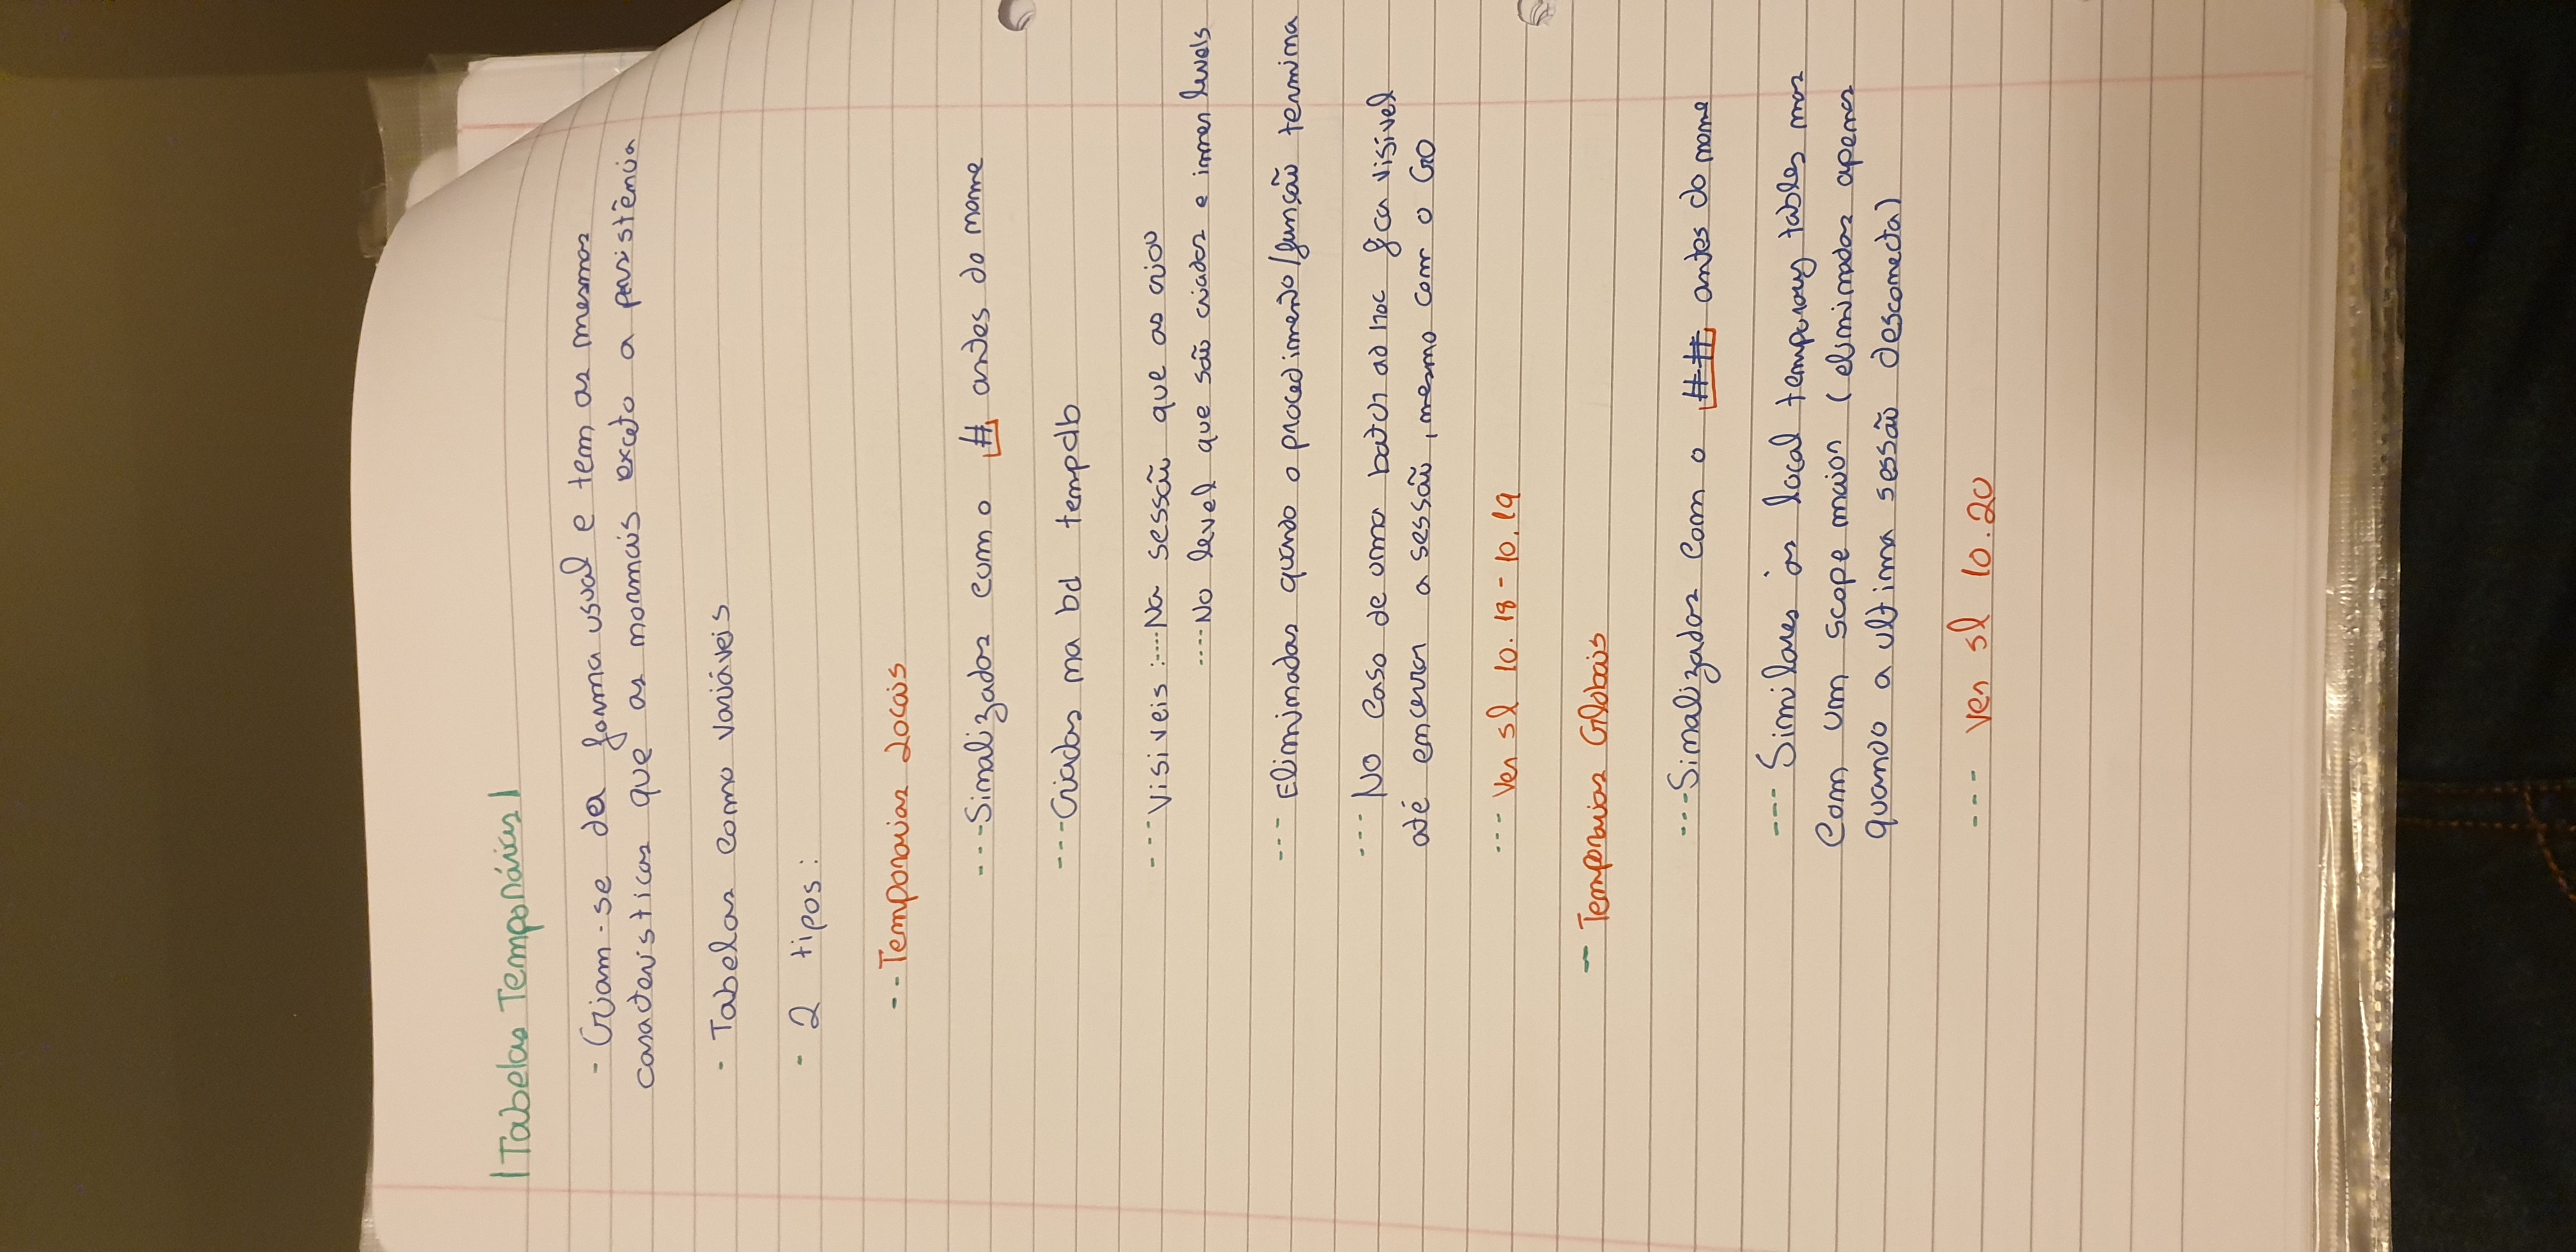 |Tabelas Temporárias|
- Criam-se da forma usual e tem as mesmas
características que as normais exceto a persistência
- Tabelas como variáveis
- 2 tipos:
-- Temporarias Locais
--- Sinalizadas com o # antes do nome
--- Criadas na bd tempdb
--- Visiveis :---- Na sessão que as criou
---- No level que são criadas e inner levels
--- Eliminadas quando o procedimento/função termina
--- No caso de uma batch ad hoc fica visível
até encerrar a sessão, mesmo com o GO
--- Ver sl 10.18 - 10.19
- Temporarias Globais
--- Sinalizadas com o ## antes do nome
--- Similares às local temporary tables mas
com um scope maior (eliminadas apenas
quando a ultima sessão desconecta)
--- Ver sl 10.20